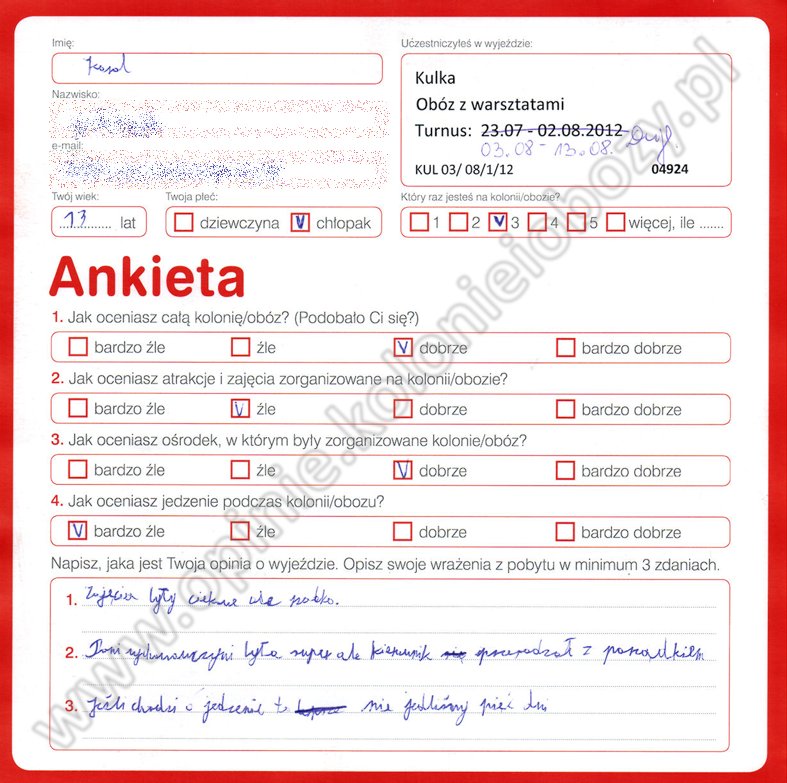 Imię:
Karol
Uczestniczyłeś w wyjeździe:
Kulka
Obóz z warsztatami
Turnus: 23.07 - 02.08.2012
03.08 - 13.08.
KUL 03/ 08/1/12 04924
Nazwisko:
e-mail:
Twój wiek:
13 lat
Twoja płeć:
dziewczyna V chłopak
Który raz jesteś na kolonii/obozie?
1 2 V 3 4 5 więcej, ile .......
Ankieta
1. Jak oceniasz całą kolonię/obóz? (Podobało Ci się?)
bardzo źle źle V dobrze bardzo dobrze
2. Jak oceniasz atrakcje i zajęcia zorganizowane na kolonii/obozie?
bardzo źle V źle dobrze bardzo dobrze
3. Jak oceniasz ośrodek, w którym były zorganizowane kolonie/obóz?
bardzo źle źle V dobrze bardzo dobrze
4. Jak oceniasz jedzenie podczas kolonii/obozu?
V bardzo źle źle dobrze bardzo dobrze
Napisz, jaka jest Twoja opinia o wyjeździe. Opisz swoje wrażenia z pobytu w minimum 3 zdaniach.
1. Zajęcia były ciekawe ale
2. Pani wychowawczyni była super ale kierownik
3. Jeśli chodzi o jedzenie to nie jedliśmy pięć dni
www.opinie.kolonieiobozy.pl